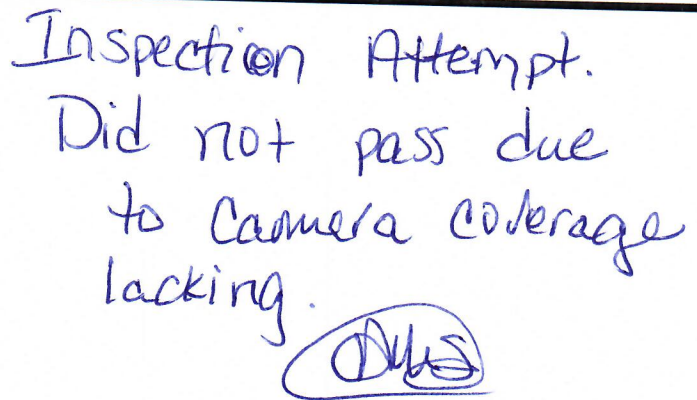 Inspection Attempt.
Did not pass due
to Camera coverage
lacking.